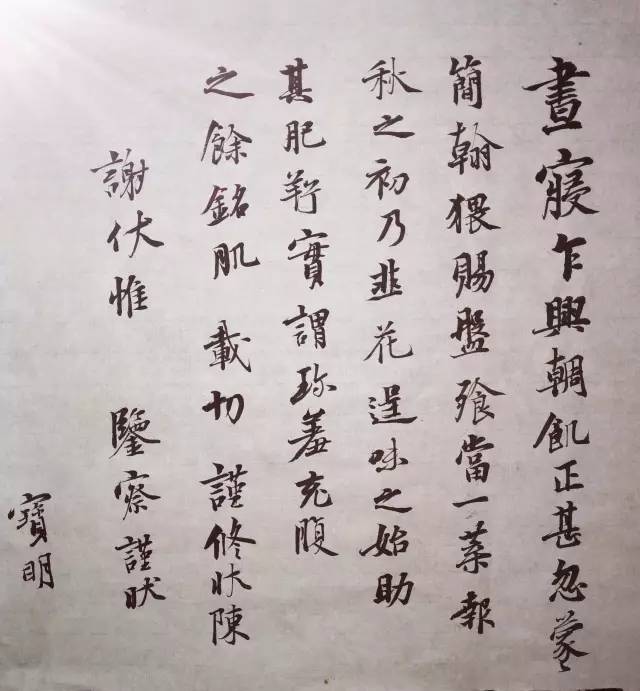 晝寢乍興輖飢正甚忽蒙
簡翰猥賜盤飧當一葉報
秋之初乃韭花逞味之始助
其肥羜實謂珍羞充腹
之餘銘肌載切謹修狀陳
謝伏惟鑒察謹狀
寶明